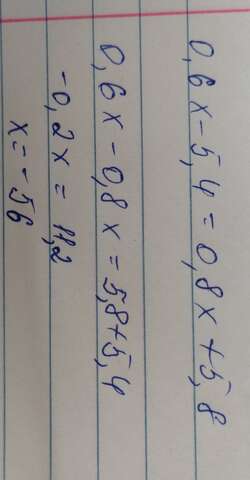 0,6x-5,4=0,8x+5,8
0,6x-0,8x=5,8+5,4
-0,2x=11,2
x=-56